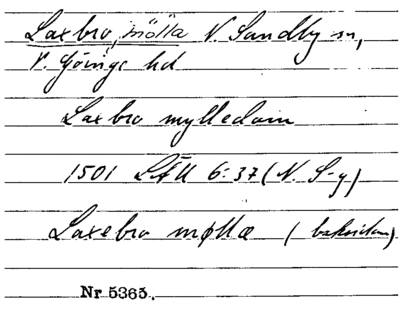 Laxbro, mölla N. Sandby sn,
V. Göinge hd
Laxbro mylledam
1501 LÄU 6:37 (N. S-y)
Laxebro møllæ (baksidan)
Nr 5365.